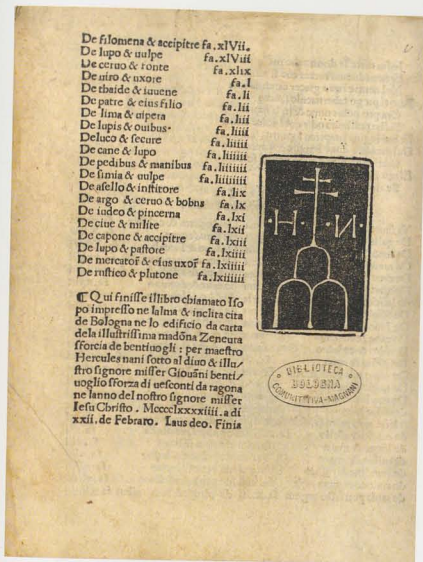 De filomena & accipitre fa.xlVii.
De lupo & uulpe fa.xlViii
De ceruo & fonte fa.xlix
De uiro & uxore fa.l
De thaide & iuuene fa.li
De patre & eius filio fa.lii
De lima & uipera fa.liii
De lupis & ouibus. fa.liiii
Deluco & secure fa.liiiii
De cane & lupo fa.liiiiii
De pedibus & manibus fa.liiiiiii
De simia & uulpe fa.liiiiiiii
De asello & institore fa.lix
De argo & ceruo & bobus fa.lx
De iudeo & pincerna fa.lxi
De ciue & milite fa.lxii
De capone & accipitre fa.lxiii
De lupo & pastore fa.lxiiii
De mercator̃ & eius uxor̃ fa.lxiiiii
De rustico & plutone fa.lxiiiiii
¶ Qui finisse illibro chiamato Iso
po impresso ne lalma & inclita cita
de Bologna ne lo edificio da carta
dela illustrissima madõna Zeneura
sforcia de bentiuogli : per maestro
Hercules nani sotto al diuo & illu/
stro signore misser Giouãni benti/
uoglio sforza di uesconti da ragona
ne lanno del nostro signore misser
Iesu Christo . Mcccclxxxxiiii. a di
xxii. de Febraro . Laus deo. Finis
·H· ·N·
BIBLIOTECA
BOLOGNA
COMUNITATIVA-MAGNANI